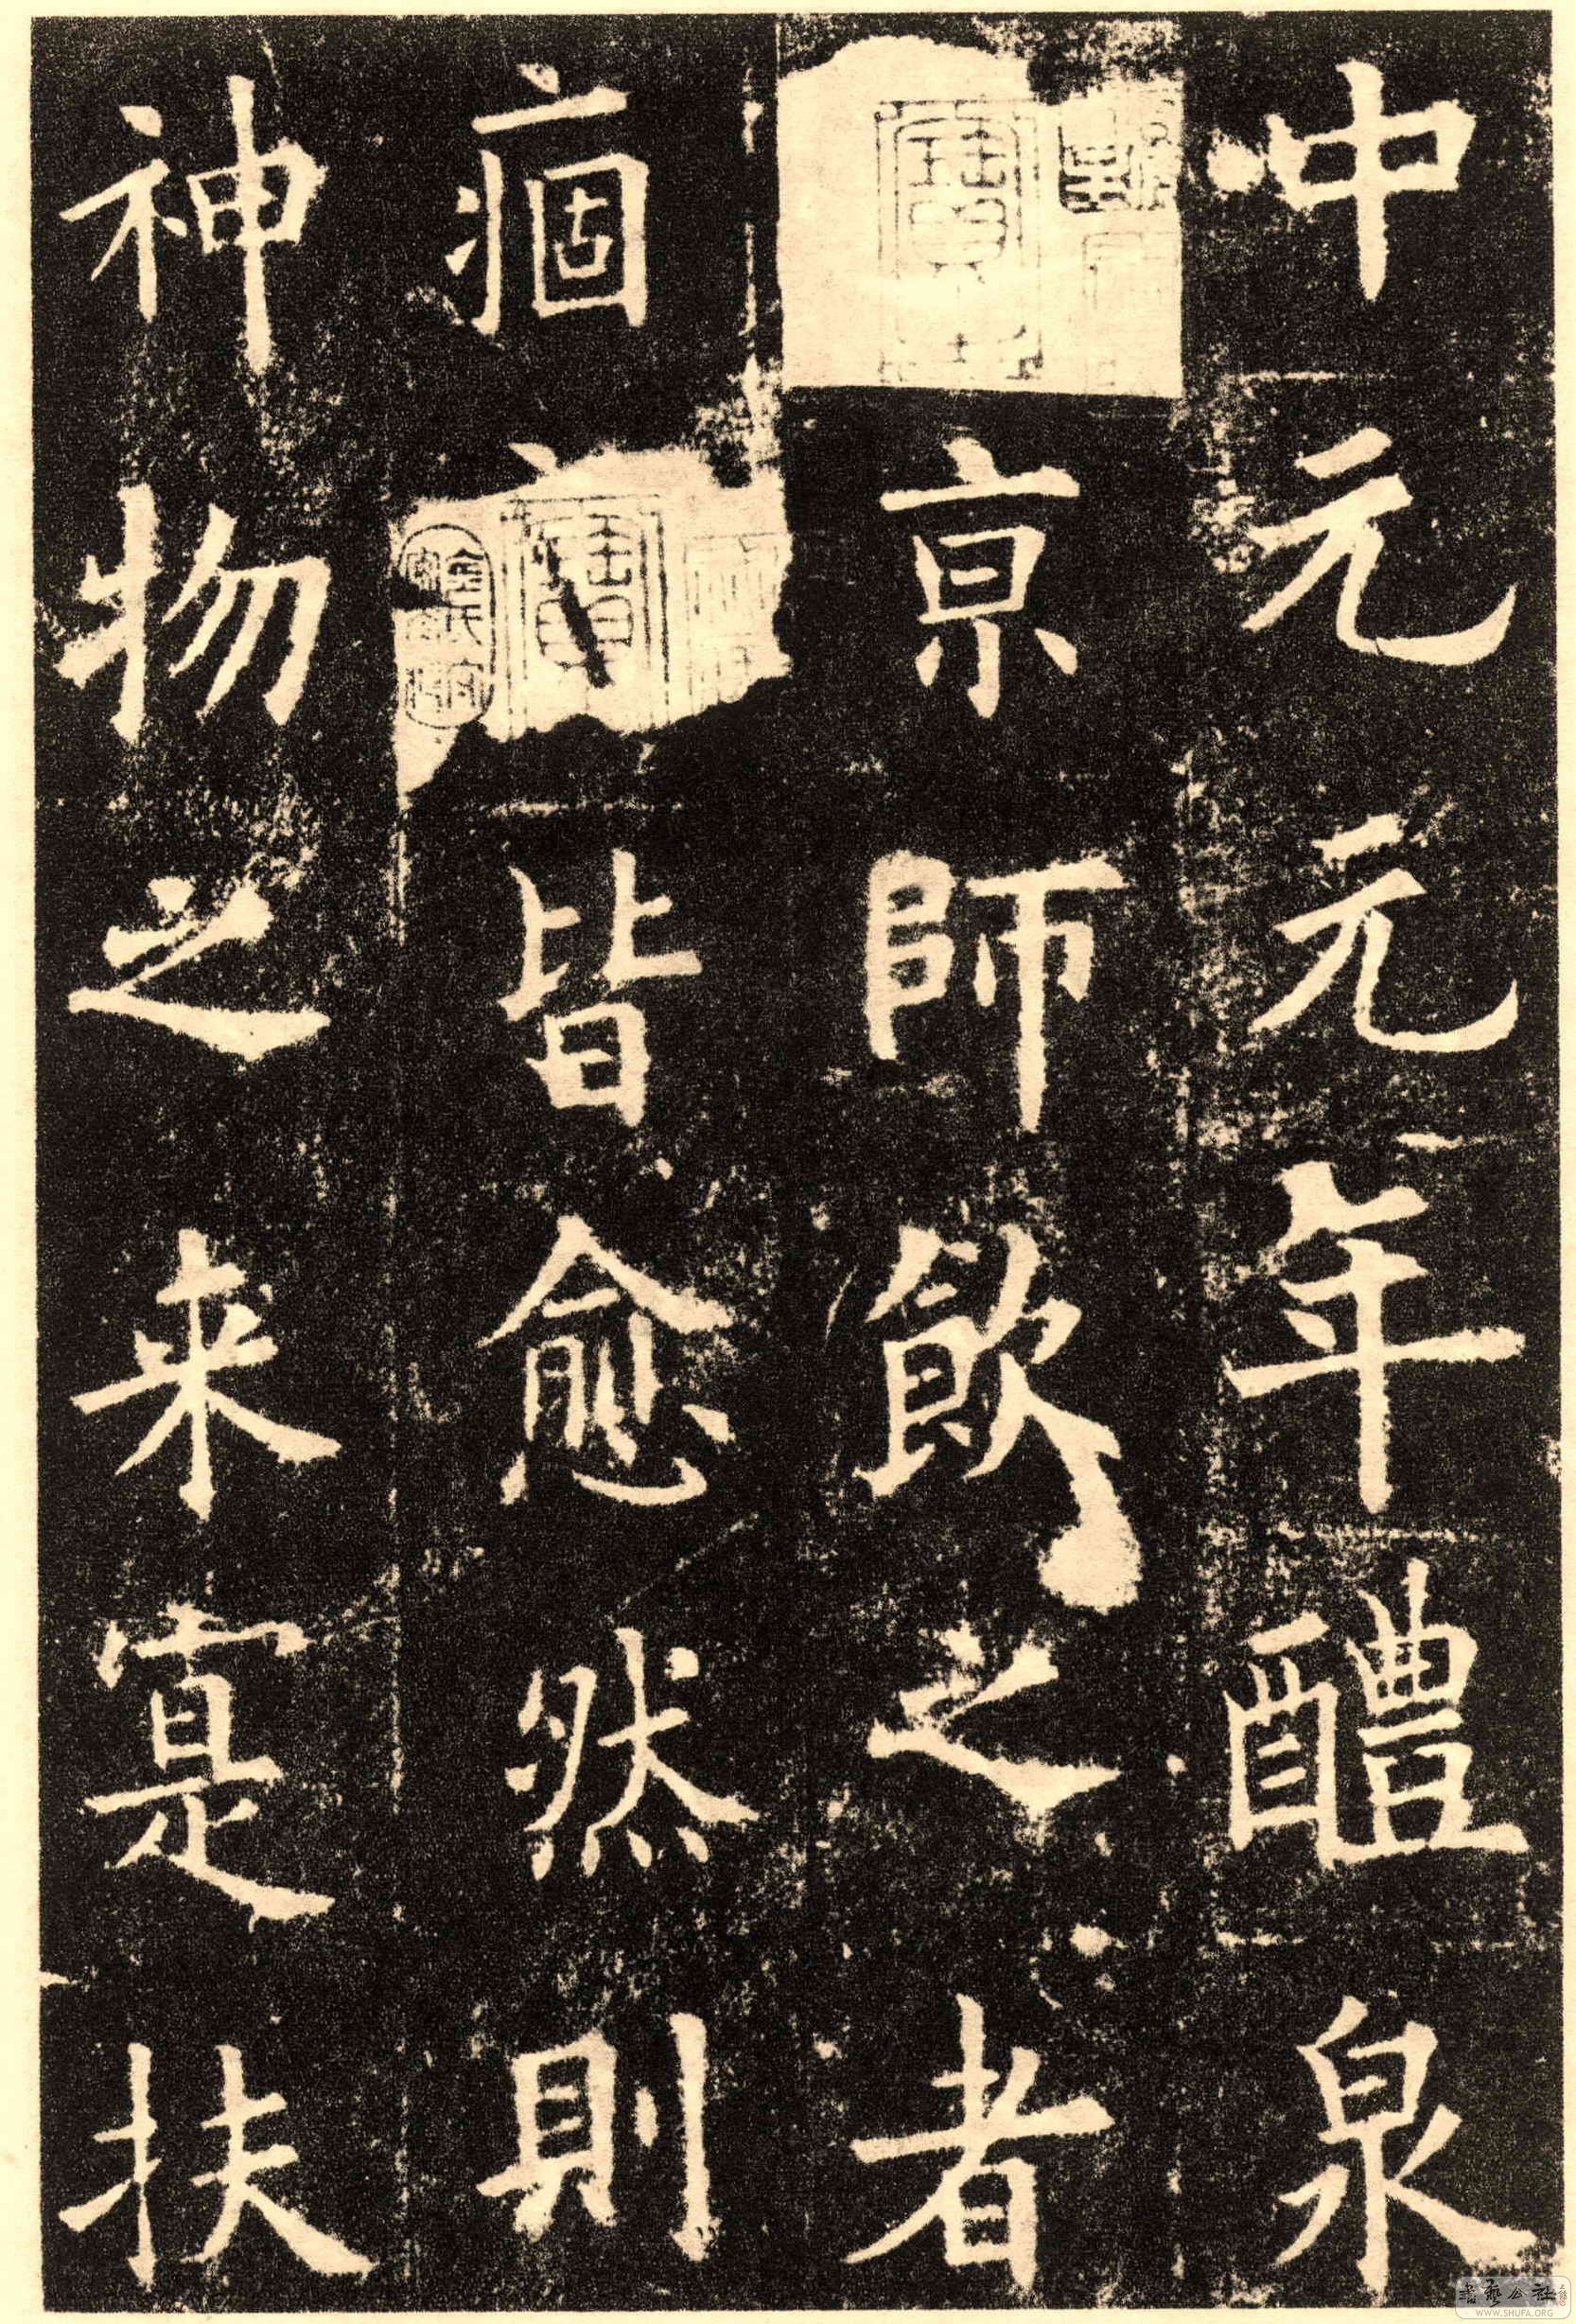 中元元年醴泉
京師飲之者
痼皆愈然則
神物之来寔扶
書藝公社
WWW.SHUFA.ORG